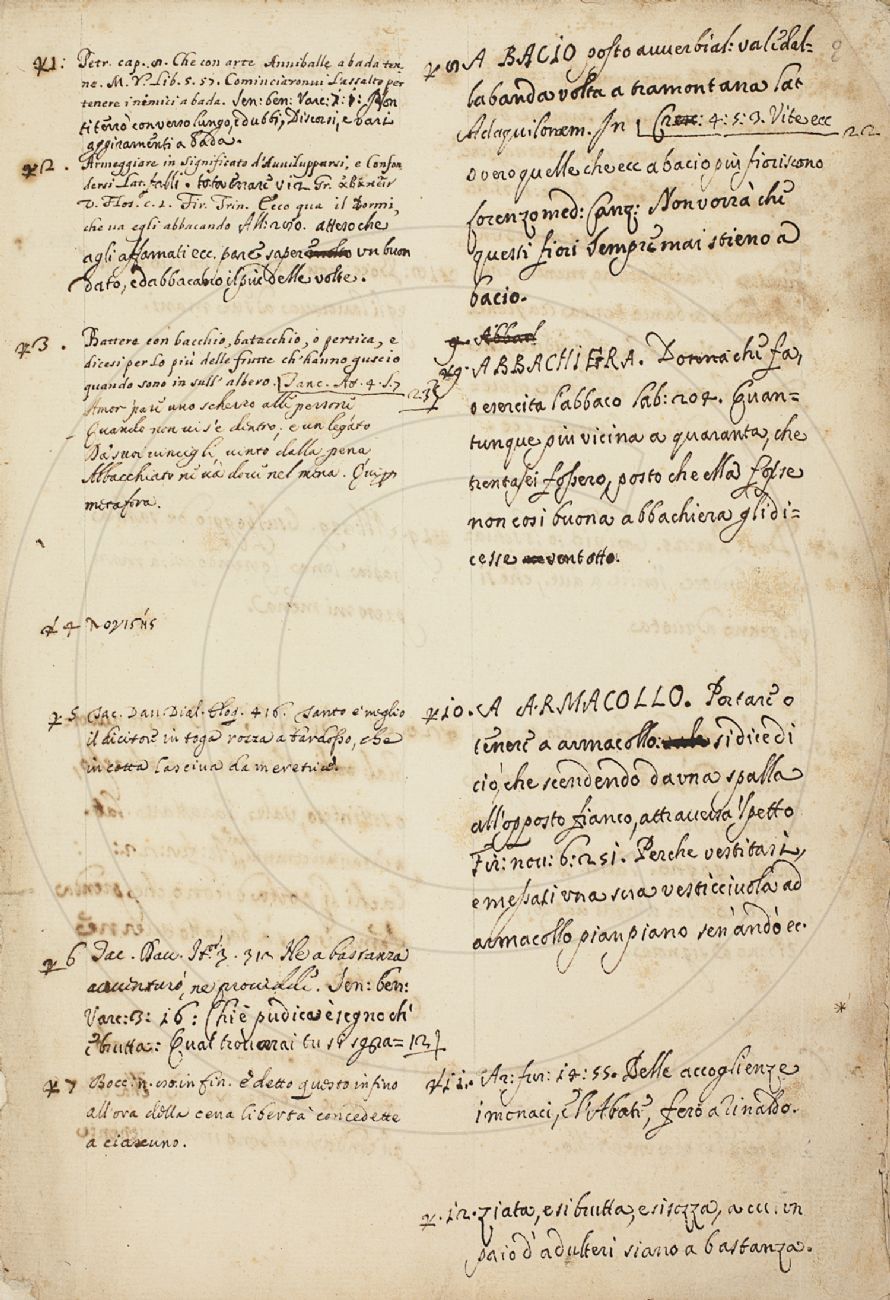 1: Petr. cap. 8. Che con arte Anniballe a bada ten
ne. M. V. Lib. 5. 57. Cominciaronvi l'assalto per
tenere i nimici a bada. Sen: ben: Varc: 1: 1: Non
ti terrò con verso lungo, e dubbi, Discorsi, e vari
aggiramenti a bada.
2. Armeggiare in significato d'avvilupparsi, e Confon
dersi Lat. falli. tota errare via Gr.
v. Flos. c. 2. Fir. Trin. Ecco qua il Dormi,
che va egli abbacando All: 230. atteso che
agli affamati ecc. parve sapere un buon
dato, ed abbacano il più delle volte.
3. Battere con bacchio, batacchio, o pertica, e
dicesi per lo più delle frutte ch'hanno guscio
quando sono in sull'albero. Tanc. At. 4. S. 7
Amor pare uno scherzo alle persone 23
Quando non vi s'è dentro, e un legato
Da suoi vincigli, vinto dalla pena
Abbacchiato ne va dov'e' nel mena. Qui p
metafora.
4
5 Jac. Dav. Dial. elog. 416. santo è meglio
il dicitore in toga rozza a tardosso, che
in cotta lasciva da meretrice.
6 Jac. Dav. 3. 31 Ne a bastanza
avventurò, ne providde. Sen: ben:
Varc: 3: 16: Chi è pudica è segno ch'
è brutta: Qual troverai tu sì sgra= 12
7 Bocc: n. in fin. è detto questo infino
all'ora della cena libertà concedette
a ciascuno.
8 A BACIO posto avverbial: vale dal-
la banda volta a tramontana Lat
Ad aquilonem. In Cresc: 4: 5: 3. Vite ecc 22
overo quelle che ecc a bacio più fioriscono
Lorenzo med: Canz: Non vorrà che
questi fiori Sempre mai stieno a
bacio.
9. Abbacl
9. ABBACHIERA. Donna che fa,
o esercita l'abbaco Lab: 204. Quan=
tunque più vicina a quaranta, che
trentasei fossero, posto che ella forse
non così buona abbachiera gli di=
cesse ventotto.
10. A ARMACOLLO. Portare o
tenere a armacollo: si dice di
ciò, che scendendo da una spalla
all'opposto fianco, attraversa 'l petto
Fir: nov: 6: 251. Perche vestitasi,
e messasi una sua vesticciuola ad
armacollo pian piano sen'andò ec.
*
11. Ar: fur: 14: 55. Delle accoglienze
i monaci, e l'Abate, fero a Rinaldo.
12. ziata, e si brutta, e si sozza, a cui un
paio d'adulteri siano a bastanza.